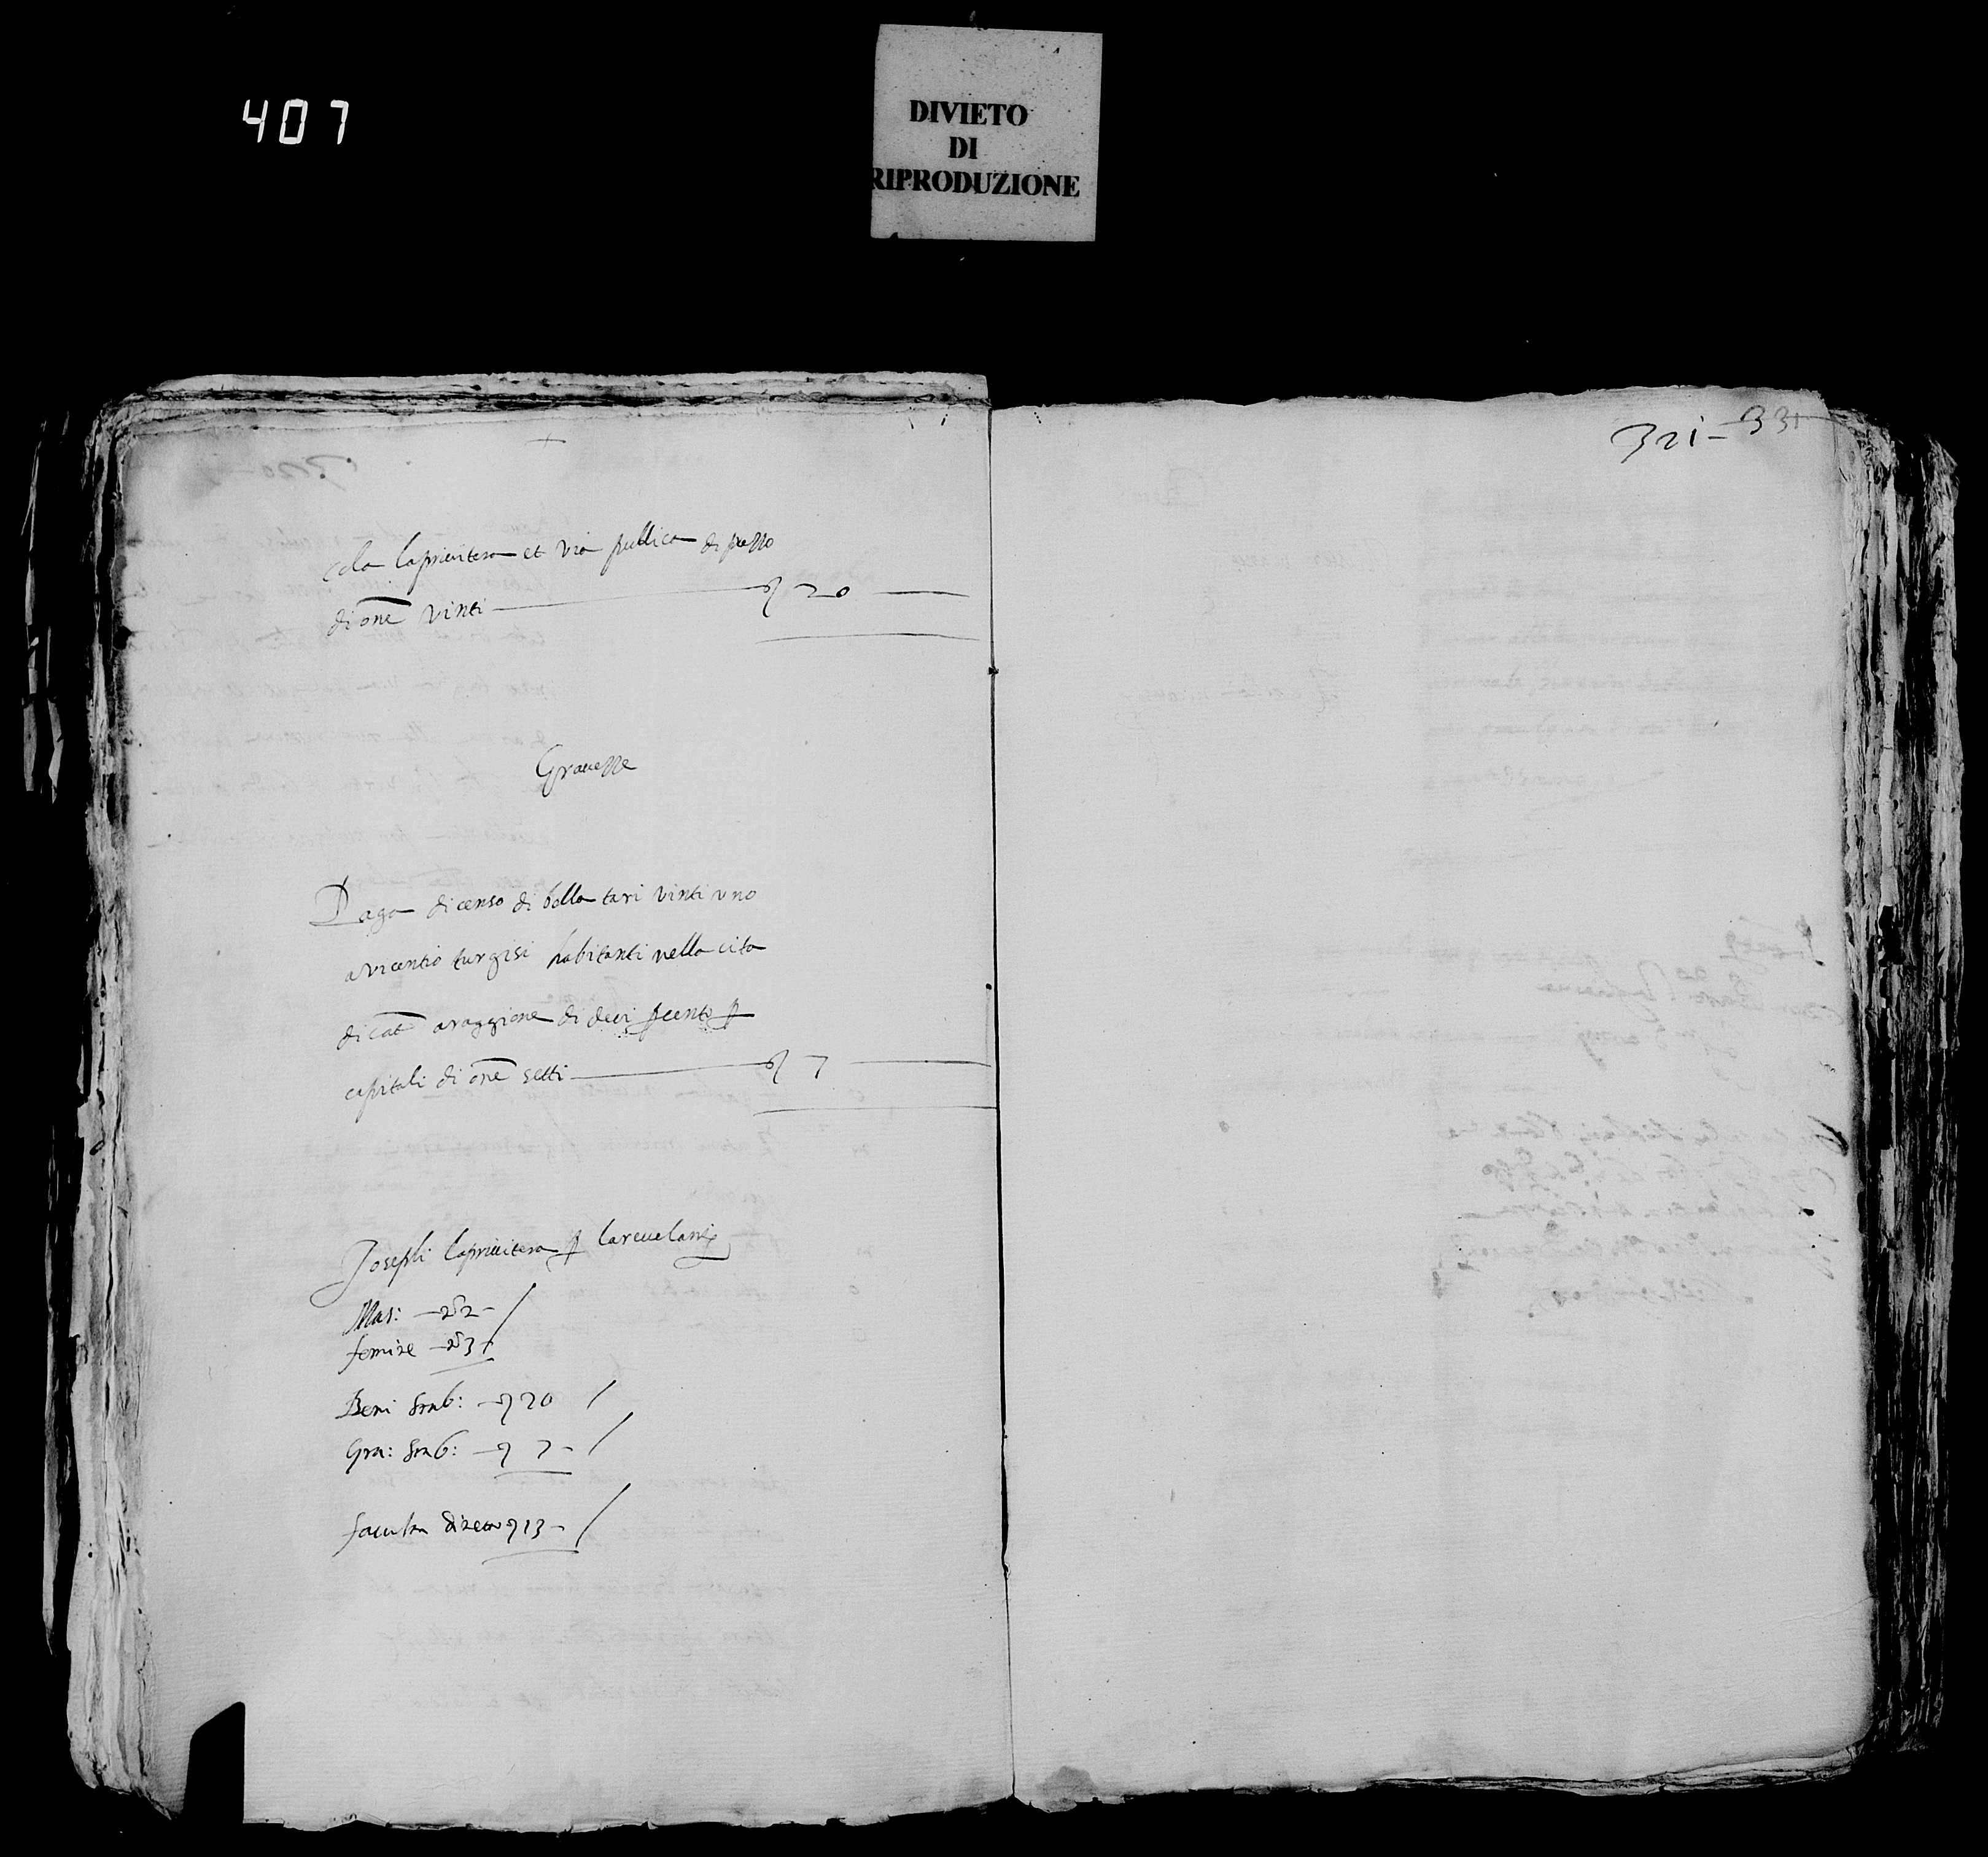 407
DIVIETO
DI
RIPRODUZIONE
321- 331
cola laprivitera et via publica di prezzo
di onẽ vinti 20
Gravezze
Paga di censo di bolla tari vinti uno
a vicentio turgisi habitanti nella cita
di cat̃ a raggione di deci p cento p
capitali di onẽ setti 7
Joseph laprivitera p
Mas: -nº2-
femine -nº3-
Beni stab: - 20
Gra: stab: - 7-
faculta 13-